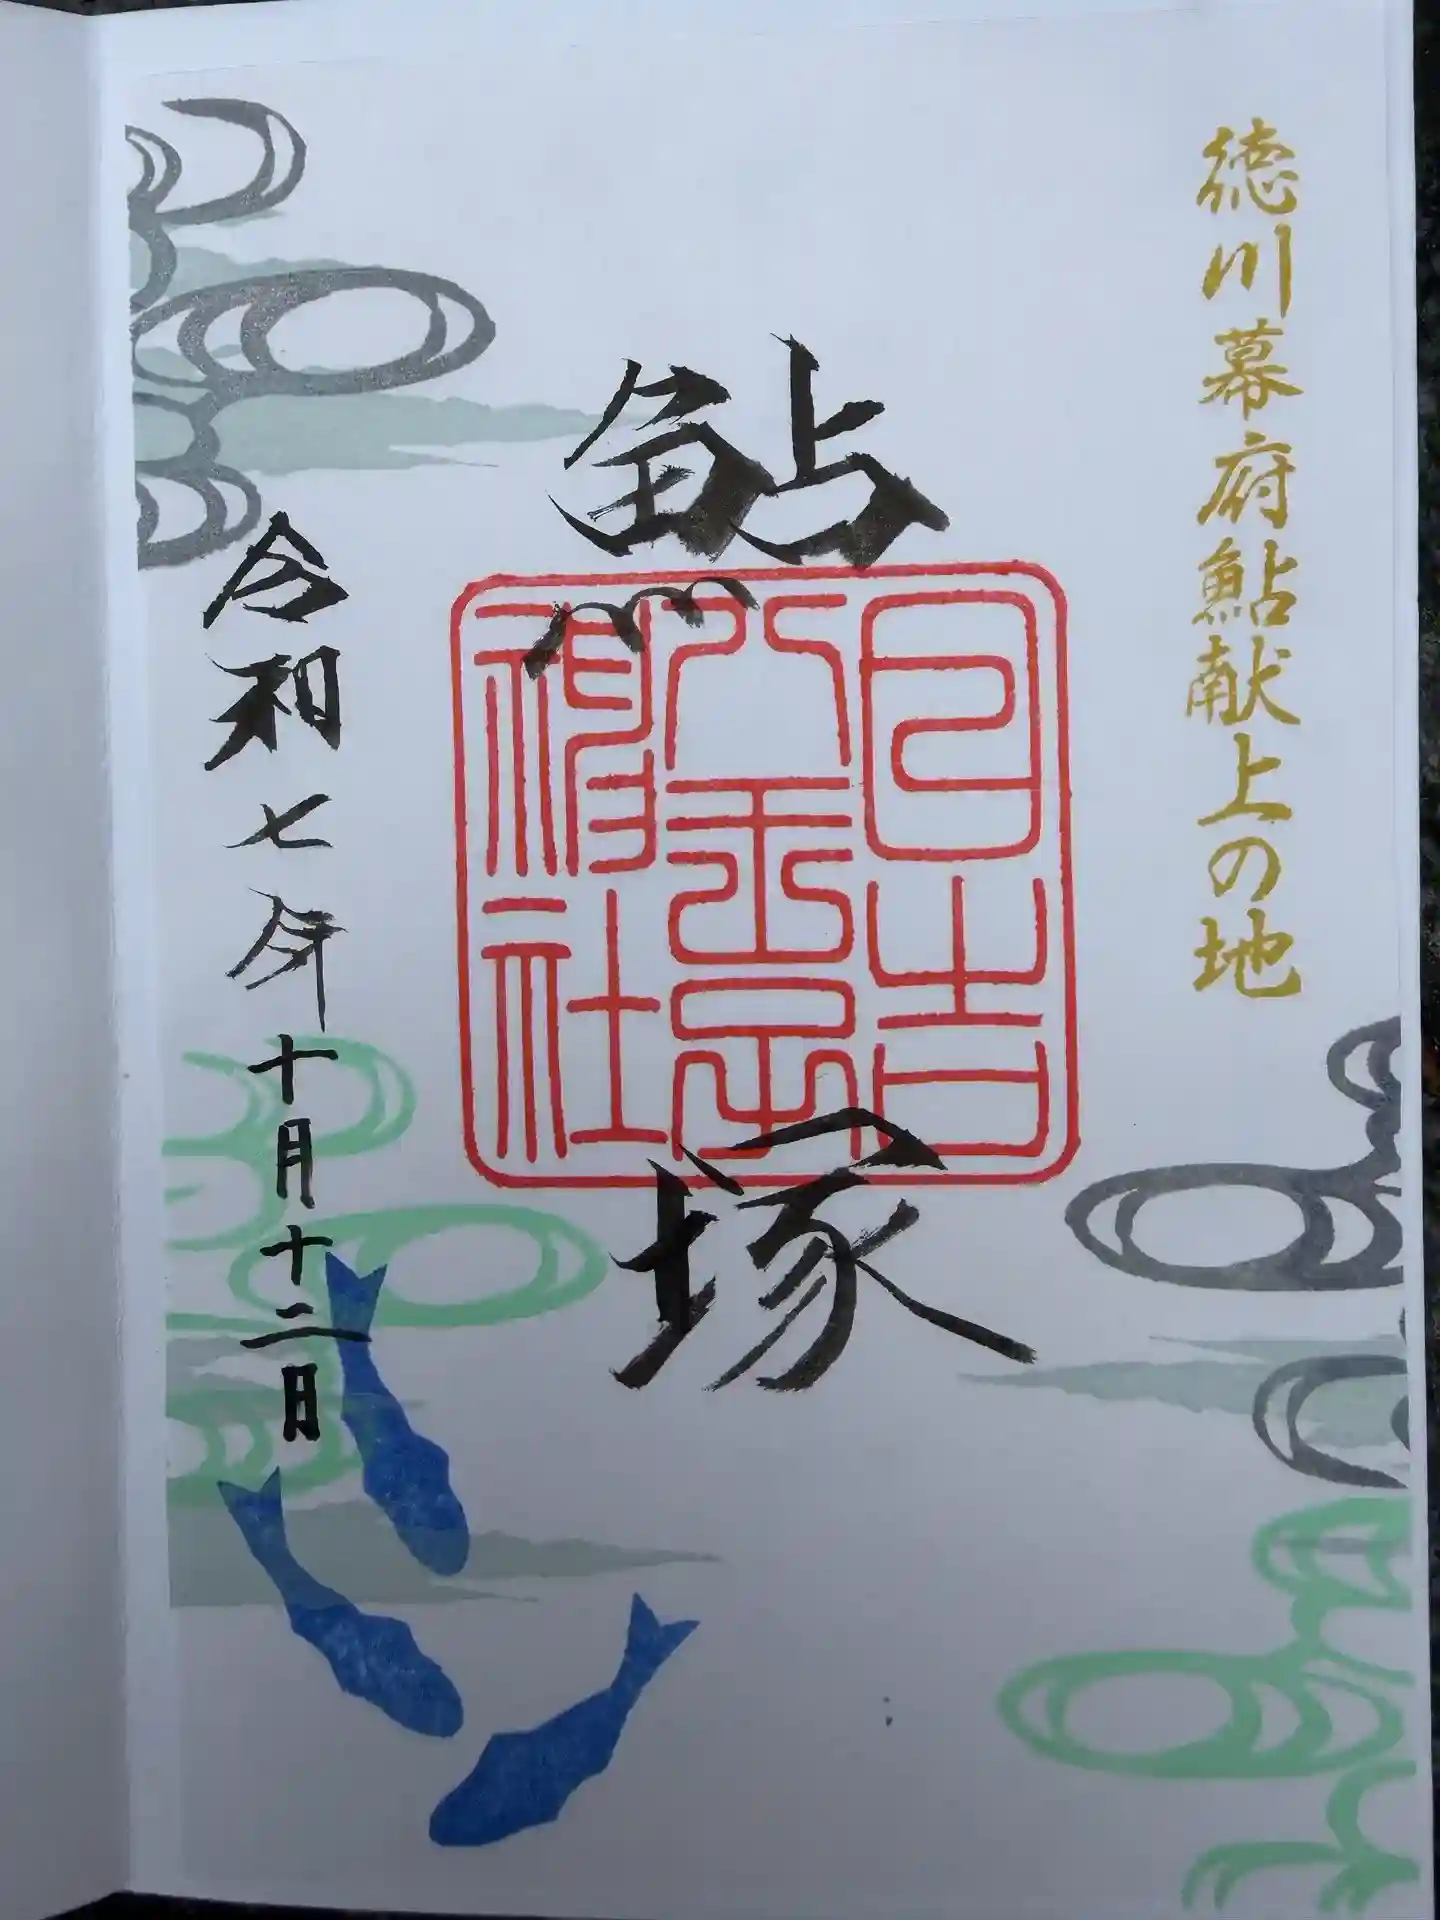 徳川幕府鮎献上の地
鮎塚
日吉
八王子
神社
令和七年十月十二日